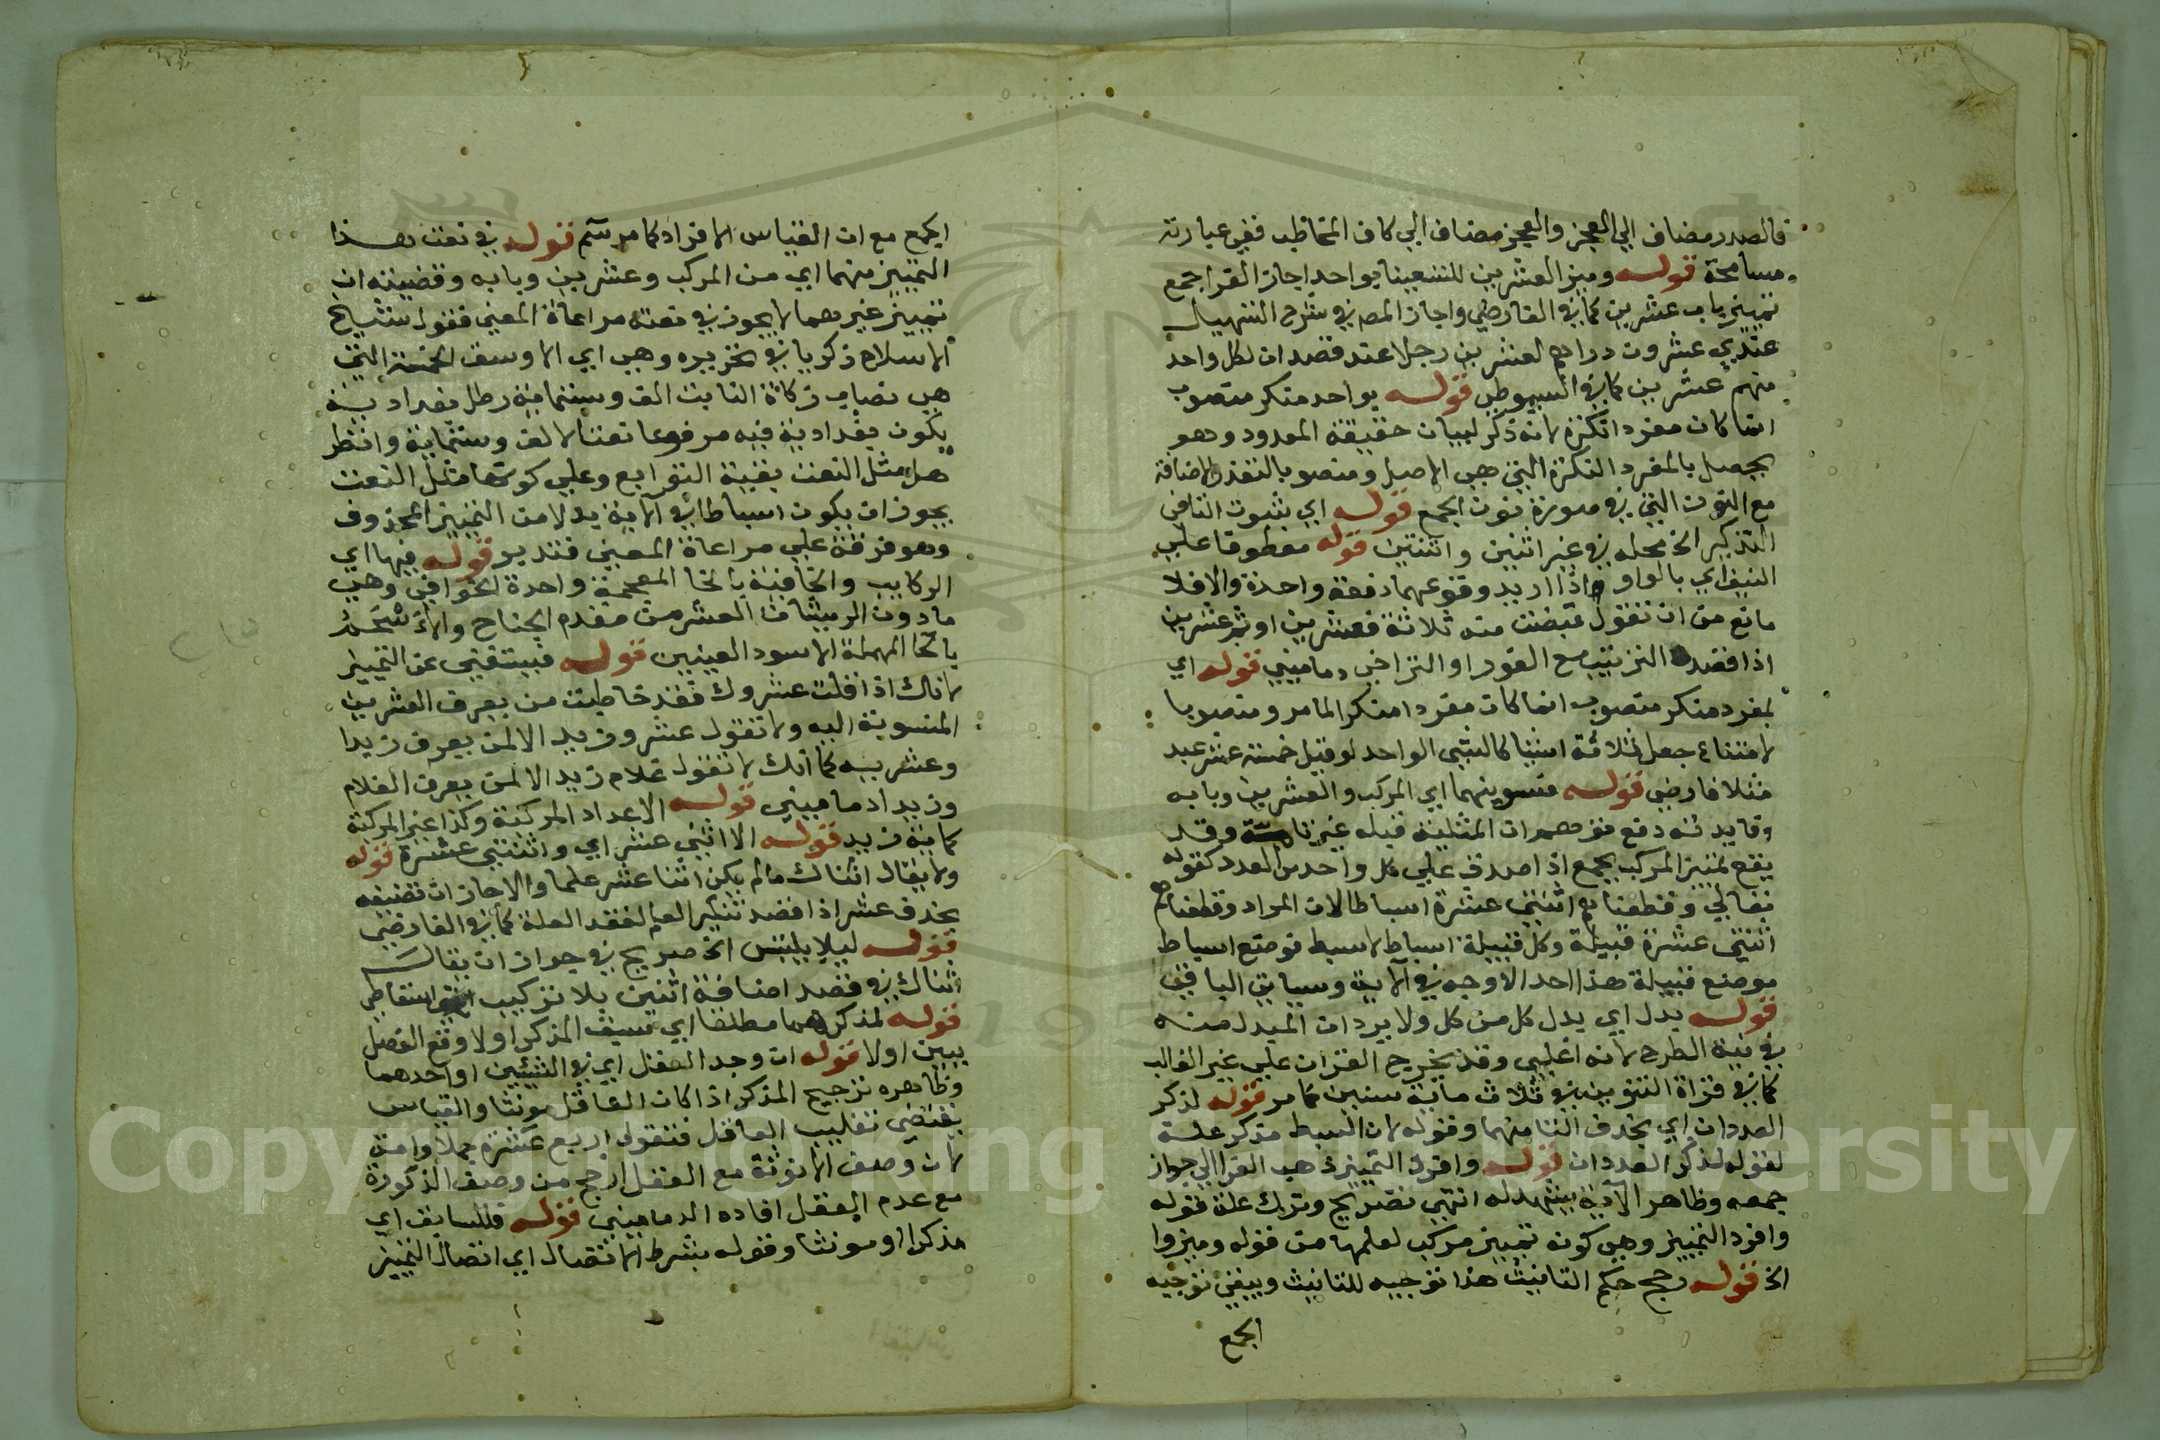 فالصدر مضاف الي العجز والعجز مضاف الي كاف المخاطب ففي عبارته
مسامحة قوله وميز العشرين للتسعينا بواحد اجاز الفرا جمع
تمييز باب عشرين كما في الفارضي واجاز المص في شرح التسهيل
عندي عشرون دراهم لعشرين رجلا عند قصد ان لكل واحد
منهم عشرين كما في السيوطي قوله بواحد منكر منصوب
انما كان مفردا نكرة لانه ذكر لبيان حقيقة المعدود وهو
يحصل بالمفرد النكرة التي هي الاصل ومنصوبا لتعذر الاضافة
مع النون التي في صورة نون الجمع قوله اي بثبوت التا في
التذكير الخ محله في غير اثنين واثنتين قوله معطوفا علي
النيف اي بالواو اذا اريد وقوعهما دفعة واحدة والا فلا
مانع من ان تقول قبضت منه ثلاثة فعشرين او ثم عشرين
اذا قصد الترتيب مع الفور او التراخي دماميني قوله اي
بمفرد منكر منصوب انما كان مفردا منكرا لما مر ومنصوبا
لامتناع جعل ثلاثة اشيا كالشي الواحد لو قيل خمسة عشر عبد
مثلا فارضي قوله فسوينهما اي المركب والعشرين وبابه
وفايدته دفع توهم ان المثلية قبله غير تامة وقد
يقع تمييز المركب جمع اذا صدق علي كل واحد من العدد كقوله
تعالي وقطعناهم اثنتي عشرة اسباطا لان المراد وقطعناهم
اثنتي عشرة قبيلة وكل قبيلة اسباط لا سبط فوضع اسباط
موضع قبيلة هذا احد الاوجه في الاية وسياتي الباقي
قوله بدل اي بدل كل من كل ولا يرد ان المبدل منه
في نية الطرح لانه اغلبي وقد يخرج القران علي غير الغالب
كما في قراة التنوين في ثلاث ماية سنين كما مر قوله لذكر
العددان اي بحذف التا منهما وقوله لان السبط مذكر علة
لقوله لذكر العددان قوله وافرد التمييز ذهب الفرا الي جواز
جمعه وظاهر الاية يشهد له انتهي تصريح وترك علة قوله
وافرد التمييز وهي كونه تمييز مركب لعلمها من قوله وميزوا
الخ قوله رجح حكم التانيث هذا توجيه للتانيث وبقي توجيه
الجمع
الجمع مع ان القياس الافراد كما مر سم قوله في نعت هذا
التمييز منهما اي من المركب وعشرين وبابه وقضيته ان
تمييز غيرهما لا يجوز في نعته مراعاة المعني فقول شيخ
الاسلام زكريا في تحريره وهي اي الاوسق الخمسة التي
هي نصاب زكاة النابت الف وستماية رطل بغدادية
يكون بغدادية فيه مرفوعا نعتا لالف وستماية وانظر
هل مثل النعت بقية التوابع وعلي كونها مثل النعت
يجوز ان يكون اسباطا في الاية بدلا من التمييز المحذوف
وهو فرقة علي مراعاة المعني فتدبر قوله فيها اي
الركايب والخافية بالخا المعجمة واحدة الخوافي وهي
ما دون الريشات العشر من مقدم الجناح والاسحم
بالحا المهملة الاسود العينين قوله فيستغني عن التمييز
لانك اذا قلت عشروك فقد خاطبت من يعرف العشرين
المنسوبة اليه ولا تقول عشرو زيد الا لمن يعرف زيدا
وعشريه كما انك لا تقول غلام زيد الا لمن يعرف الغلام
وزيدا دماميني قوله الاعداد المركبة وكذا غير المركبة
كماية زيد قوله الا اثني عشر اي واثنتي عشرة قوله
ولا يقال اثناك ما لم يكن اثنا عشر علما والا جاز ان تضيفه
بحذف عشر اذا قصد تنكير العلم لفقد العلة كما في الفارضي
قوله ليلا يلتبس الخ صريح في جواز ان يقال
اثناك في قصد اضافة اثنين بلا تركيب اسقاطي
قوله لمذكرهما مطلقا اي سبق المذكر اولا وقع الفصل
ببين اولا قوله ان وجد العقل اي في الشيئين او احدهما
وظاهره ترجيح المذكر اذا كان العاقل مونثا والقياس
يقتضي تغليب العاقل فتقول اربع عشرة جملا وامة
لان وصف الانوثة مع العقل ارجح من وصف الذكورة
مع عدم العقل افاده الدماميني قوله فللسابق اي
مذكرا او مونثا وقوله بشرط الاتصال اي اتصال التمييز
Copyright © King Saud University